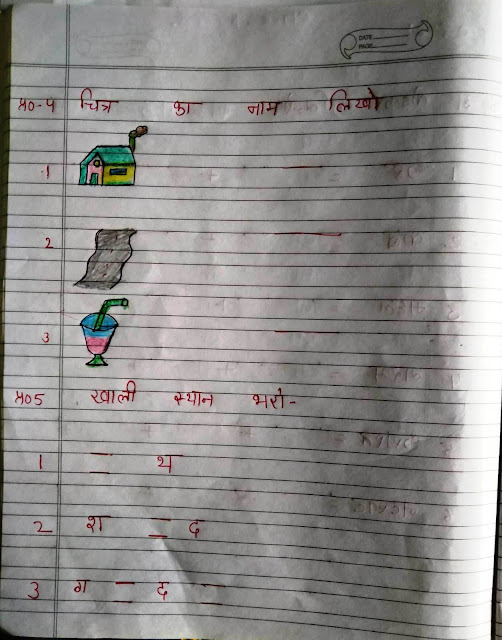 DATE
PAGE
प्र०-4 चित्र का नाम लिखो
1
2
3
प्र०5 खाली स्थान भरो-
1 _ थ
2 श _ द
3 ग _ द _